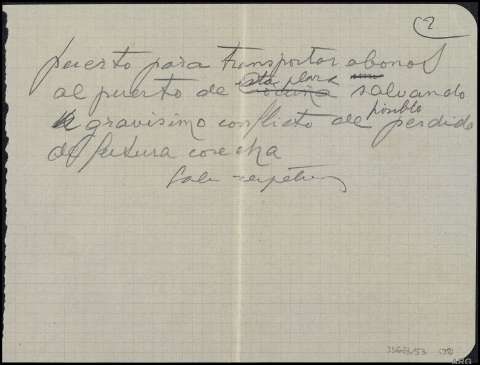 2
puerto para transportar abonos
al puerto de esta plaza salvando
gravisimo conflicto de posible perdida
de futura cosecha
ARG